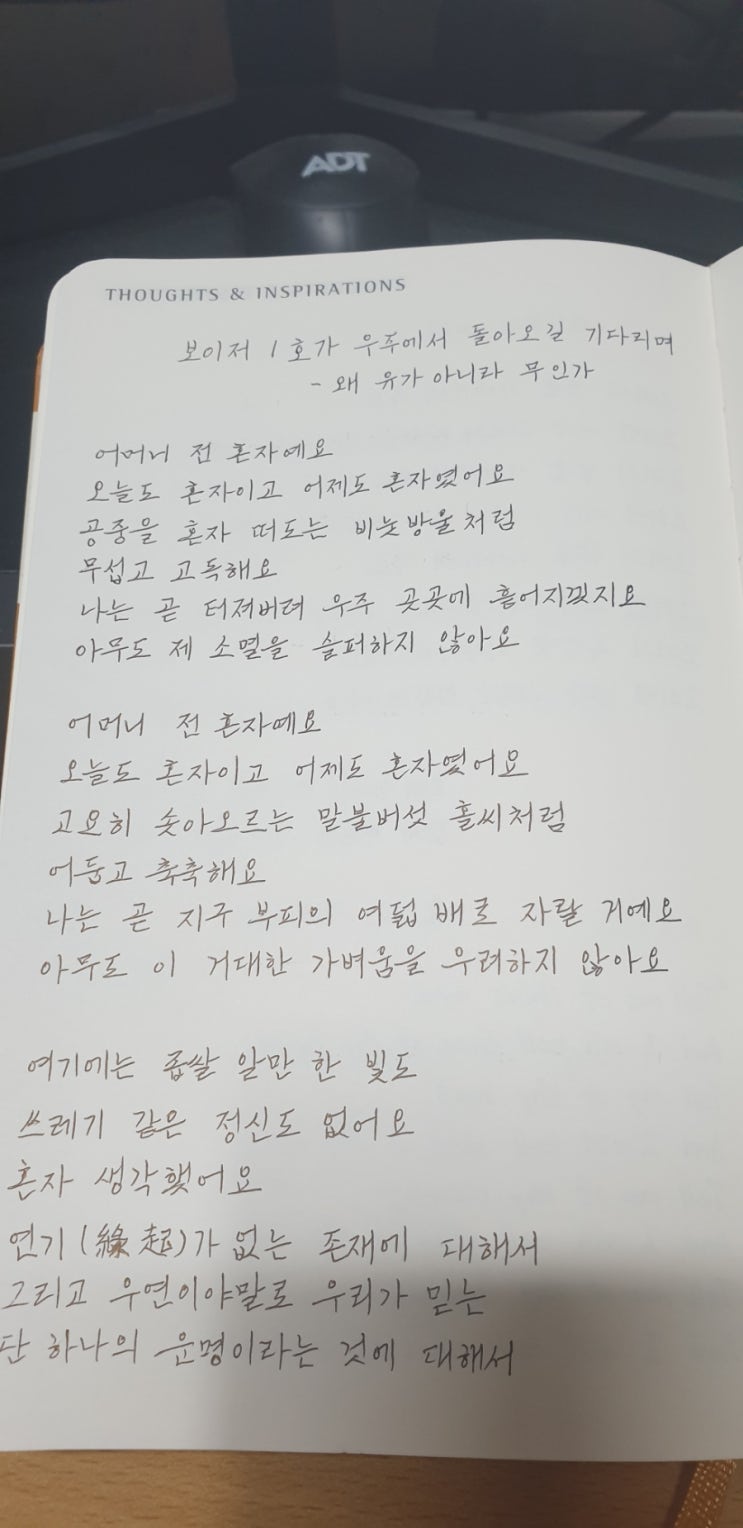 ADT
THOUGHTS & INSPIRATIONS
보이저 1호가 우주에서 돌아오길 기다리며
- 왜 유가 아니라 무인가
어머니 전 혼자예요
오늘도 혼자이고 어제도 혼자였어요
공중을 혼자 떠도는 비눗방울처럼
무섭고 고독해요
나는 곧 터져버려 우주 곳곳에 흩어지겠지요
아무도 제 소멸을 슬퍼하지 않아요
어머니 전 혼자예요
오늘도 혼자이고 어제도 혼자였어요
고요히 솟아오르는 말불버섯 홀씨처럼
어둡고 축축해요
나는 곧 지구 부피의 여덟 배로 자랄 거예요
아무도 이 거대한 가벼움을 우려하지 않아요
여기에는 좁쌀 알만 한 빛도
쓰레기 같은 정신도 없어요
혼자 생각했어요
연기(緣起)가 없는 존재에 대해서
그리고 우연이야말로 우리가 믿는
단 하나의 운명이라는 것에 대해서